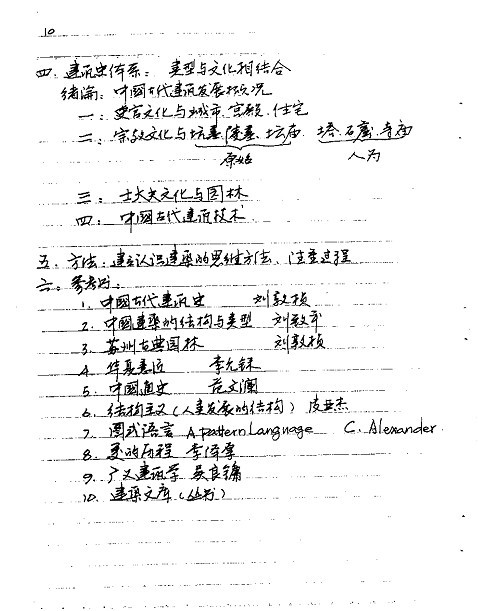 10
四. 建筑史体系: 类型与文化相结合
绪论: 中国古代建筑发展概况
一: 史官文化与城市.宫殿.住宅
二: 宗教文化与坟墓.陵墓.坛庙. 塔.石窟.寺庙
原始 人为
三: 士大夫文化与园林
四: 中国古代建筑技术
五. 方法: 建立认识建筑的思维方法. 注重过程
六. 参考书:
1. 中国古代建筑史 刘敦桢
2. 中国建筑的结构与类型 刘致平
3. 苏州古典园林 刘敦桢
4. 华夏意匠 李允鉌
5. 中国通史 范文澜
6. 结构主义(人类发展的结构) 皮亚杰
7. 图式语言 A pattern Language C. Alexander.
8. 美的历程 李泽厚
9. 广义建筑学 吴良镛
10. 建筑文库(丛书)